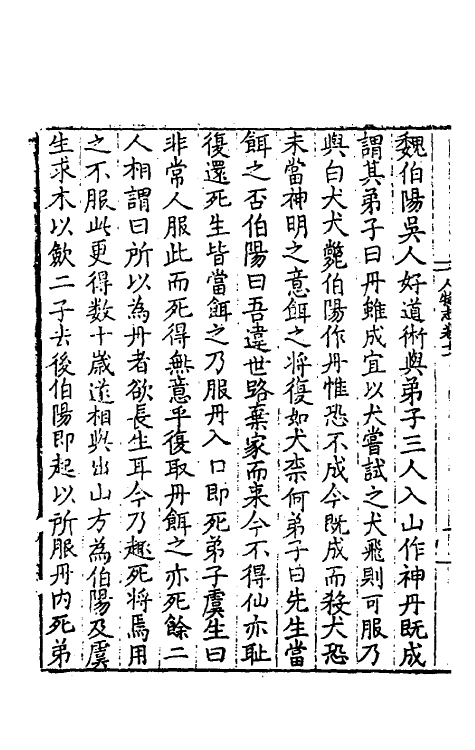 魏伯陽吳人好道術與弟子三人入山作神丹既成
謂其弟子曰丹雖成宜以犬嘗試之犬飛則可服乃
與白犬犬斃伯陽作丹惟恐不成今既成而殺犬恐
未當神明之意餌之将復如犬柰何弟子曰先生當
餌之否伯陽曰吾違世路棄家而来今不得仙亦耻
復還死生皆當餌之乃服丹入口即死弟子虞生曰
非常人服此而死得無意乎復取丹餌之亦死餘二
人相謂曰所以為丹者欲長生耳今乃趣死将焉用
之不服此更得数十歲遂相與出山方為伯陽及虞
生求木以歛二子去後伯陽即起以所服丹内死弟